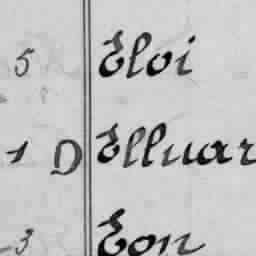 5 Eloi
1 D Elluar
3 Eon